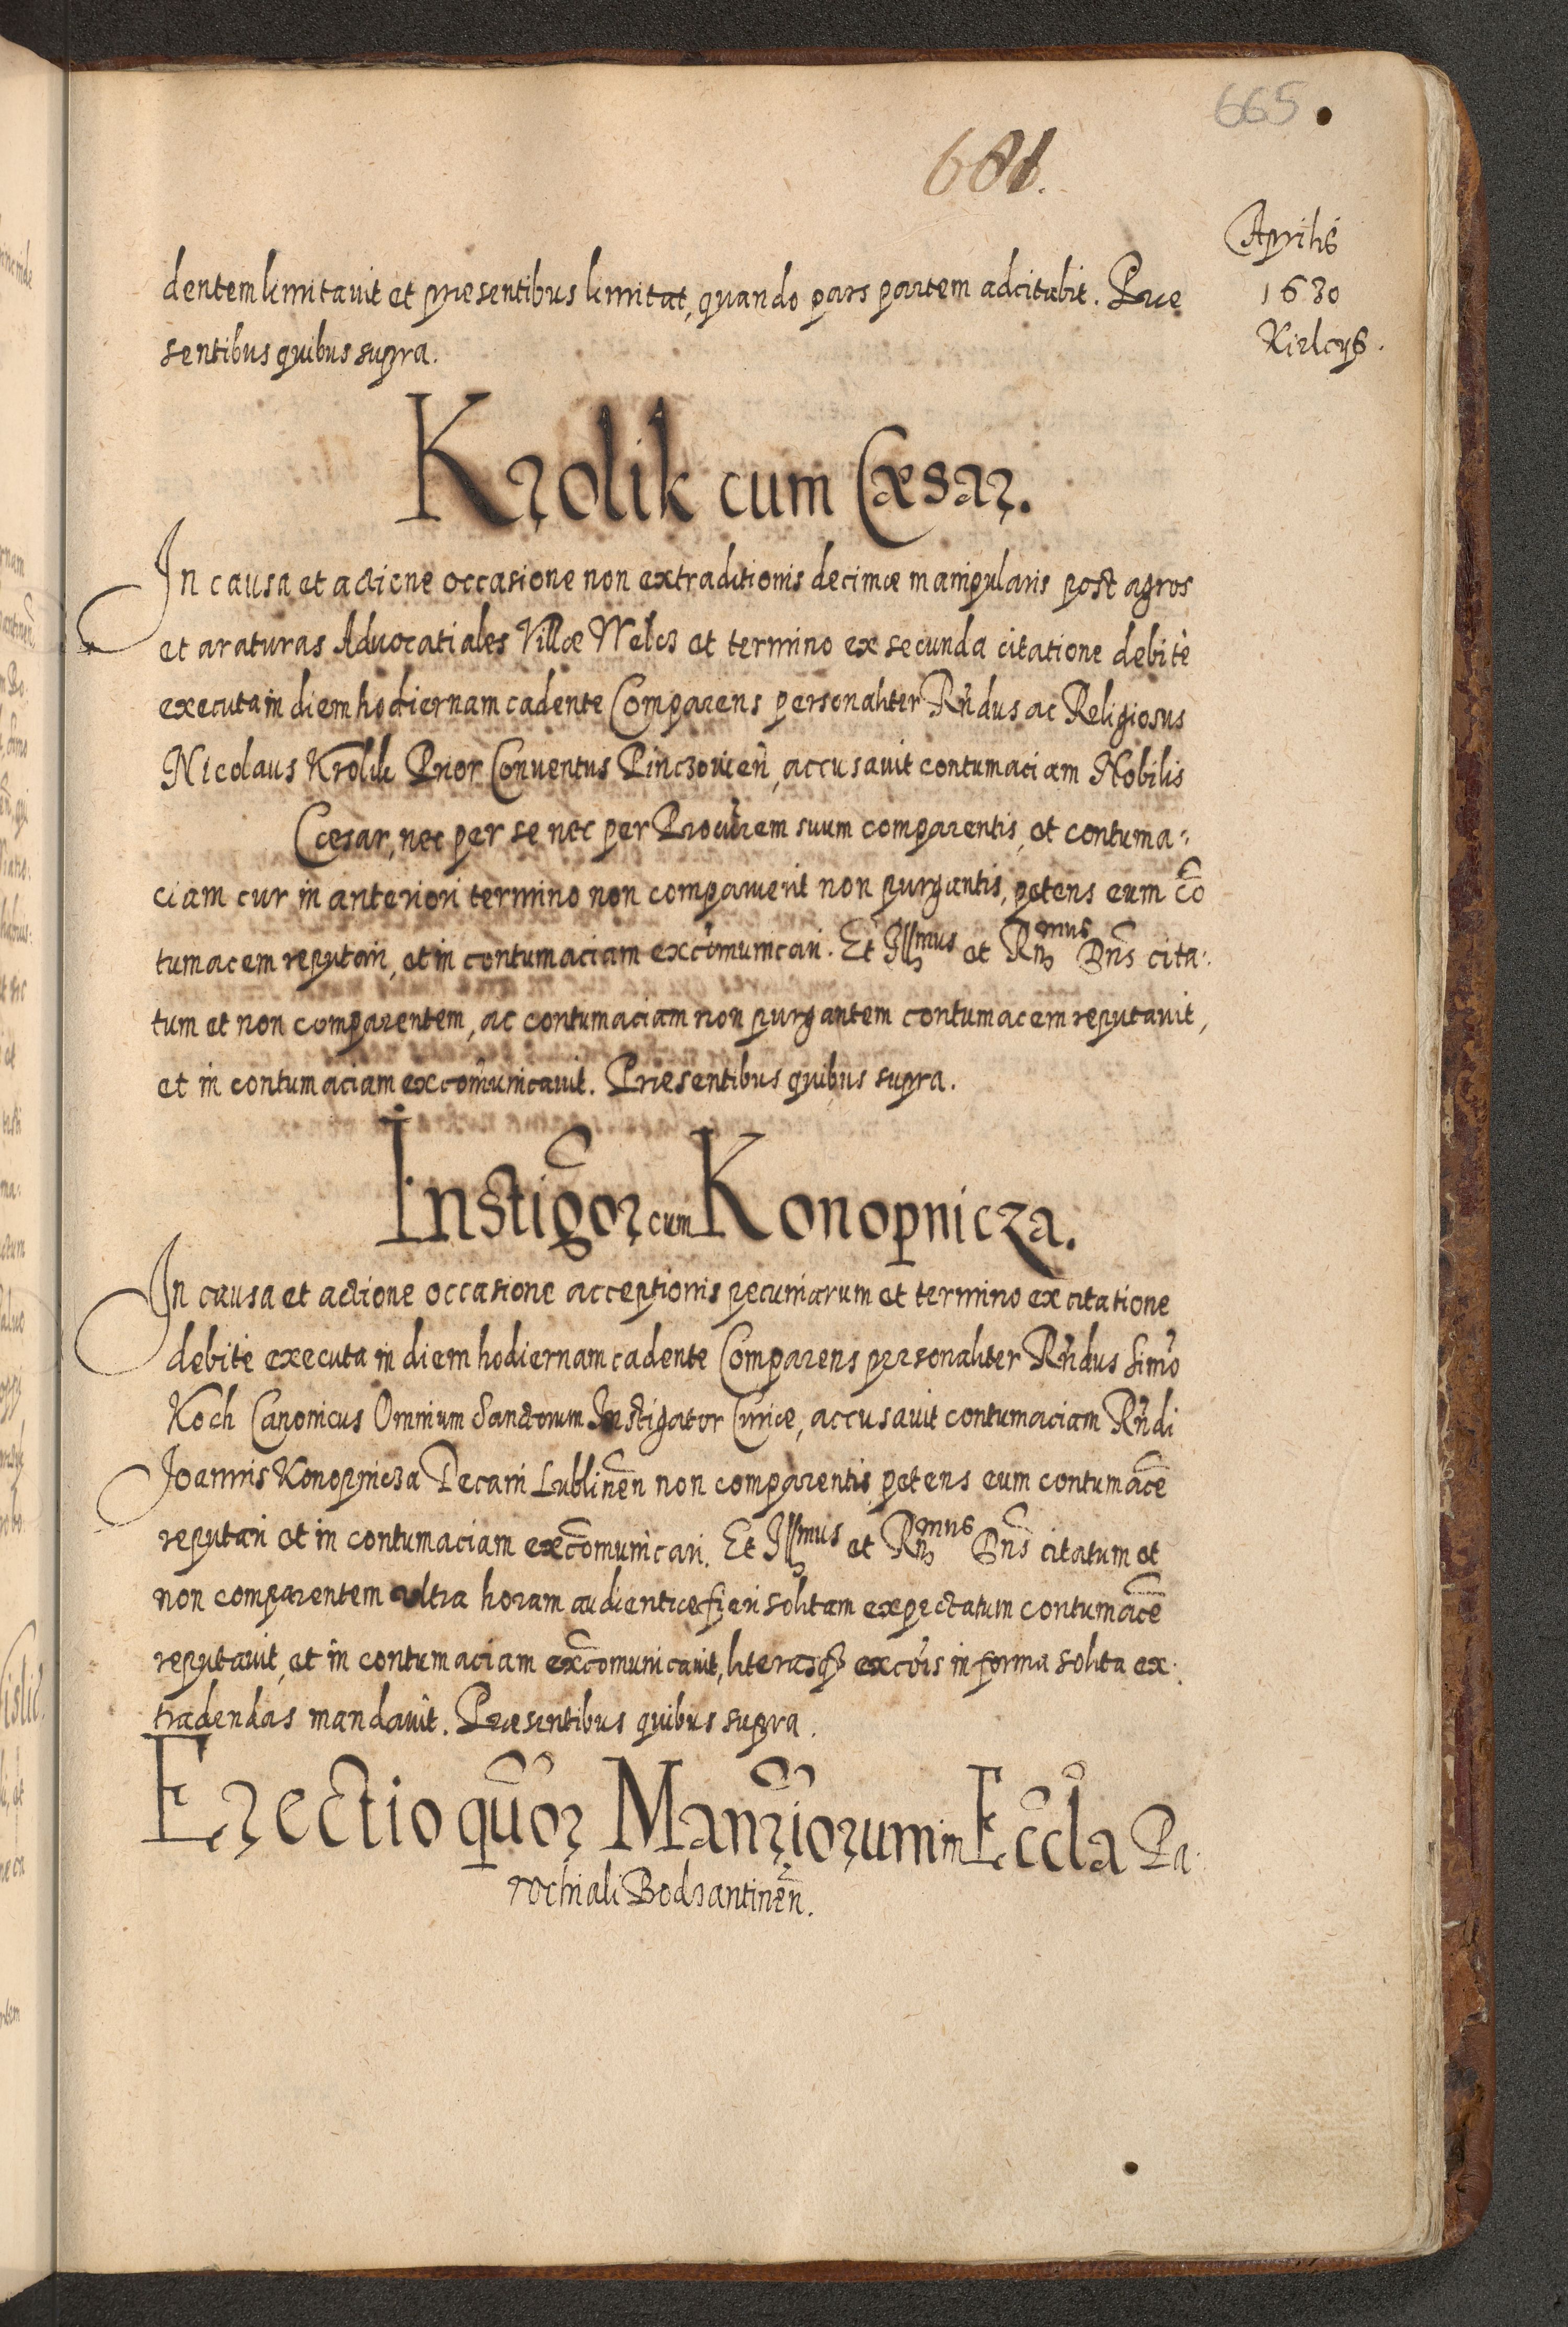 665.
681.
Aprilis
1630
Kielcys.
dentem limitavit et præsentibus limitat, quando pars partem adcitabit. Præ
sentibus quibus supra.
Krolik cum Cæsar.
In causa et actione occasione non extraditionis decimæ manipularis post agros
et araturas Advocatiales Villæ Welcz et termino ex secunda citatione debitè
executa in diem hodiernam cadente Comparens personaliter Rndus ac Religiosus
Nicolaus Krolik Prior Conventus Pinczovien, accusavit contumaciam Nobilis
Cæsar, nec per se nec per Procurem suum comparentis, et contuma-
ciam cur in anteriori termino non comparuerit non purgantis, petens eum cō
tumacem reputari, et in contumaciam excomunicari. Et Illmus et Rnmus Dns cita-
tum et non comparentem, ac contumaciam non purgantem contumacem reputavit,
et in contumaciam excomunicavit. Præsentibus quibus supra.
Instigor cum Konopnicza.
In causa et actione occasione acceptionis pecuniarum et termino ex citatione
debitè executa in diem hodiernam cadente Comparens personaliter Rndus Simō
Koch Canonicus Omnium Sanctorum Instigator Curiæ, accusavit contumaciam Rndi
Joannis Konopnicza Decani Lublinen non comparentis petens eum contumacē
reputari et in contumaciam excomunicari. Et Illmus et Rnmus Dns citatum et
non comparentem ultra horam audientiæ fieri solitam expectatum contumacē
reputavit, et in contumaciam excomunicavit, literasq excois in forma solita ex-
tradendas mandavit. Præsentibus quibus supra.
Erectio quor Mansriorum in Eccla Pa-
rochiali Bodzantinen.